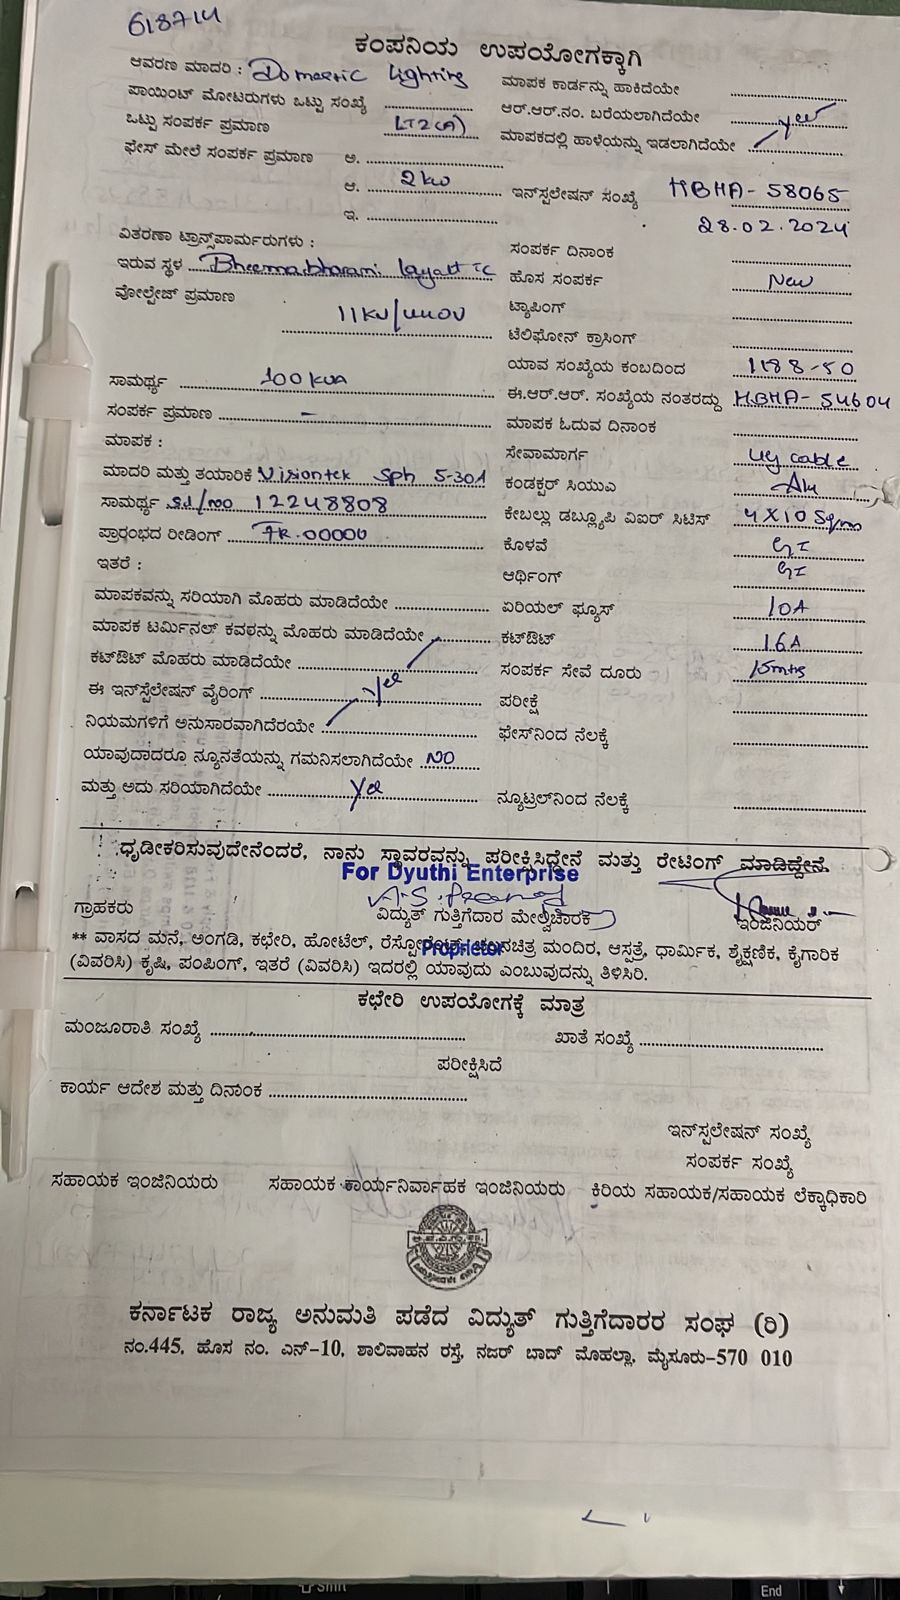 618714
ಕಂಪನಿಯ ಉಪಯೋಗಕ್ಕಾಗಿ
ಆವರಣ ಮಾದರಿ : Domestic lighting
ಮಾಪಕ ಕಾರ್ಡನ್ನು ಹಾಕಿದೆಯೇ
ಪಾಯಿಂಟ್ ಮೋಟರುಗಳು ಒಟ್ಟು ಸಂಖ್ಯೆ
ಆರ್.ಆರ್.ನಂ. ಬರೆಯಲಾಗಿದೆಯೇ yes
ಒಟ್ಟು ಸಂಪರ್ಕ ಪ್ರಮಾಣ LT2(A)
ಮಾಪಕದಲ್ಲಿ ಹಾಳೆಯನ್ನು ಇಡಲಾಗಿದೆಯೇ
ಫೇಸ್ ಮೇಲೆ ಸಂಪರ್ಕ ಪ್ರಮಾಣ ಅ.
ಆ. 2kw
ಇನ್‌ಸ್ಪಲೇಷನ್ ಸಂಖ್ಯೆ HBHA-58065
ಇ.
28.02.2024
ವಿತರಣಾ ಟ್ರಾನ್ಸ್‌ಫಾರ್ಮರುಗಳು :
ಸಂಪರ್ಕ ದಿನಾಂಕ
ಇರುವ ಸ್ಥಳ layout TC
ಹೊಸ ಸಂಪರ್ಕ New
ವೋಲ್ಟೇಜ್ ಪ್ರಮಾಣ 11KV/440V
ಟ್ಯಾಪಿಂಗ್
ಟೆಲಿಫೋನ್ ಕ್ರಾಸಿಂಗ್
ಯಾವ ಸಂಖ್ಯೆಯ ಕಂಬದಿಂದ 1188-50
ಸಾಮರ್ಥ್ಯ 100KVA
ಈ.ಆರ್.ಆರ್. ಸಂಖ್ಯೆಯ ನಂತರದ್ದು HBHA-54604
ಸಂಪರ್ಕ ಪ್ರಮಾಣ –
ಮಾಪಕ ಓದುವ ದಿನಾಂಕ
ಮಾಪಕ :
ಸೇವಾಮಾರ್ಗ ug cable
ಮಾದರಿ ಮತ್ತು ತಯಾರಿಕೆ Visiontek Sph 5-30A
ಕಂಡಕ್ಟರ್ ಸಿಯುಎ Alu
ಸಾಮರ್ಥ್ಯ Sl/no 12248808
ಕೇಬಲ್ಲು ಡಬ್ಲ್ಯೂಪಿ ವಿಐರ್ ಸಿಟಿಸ್ 4X10 Sqmm
ಪ್ರಾರಂಭದ ರೀಡಿಂಗ್ FR.00000
ಕೊಳವೆ GI
ಇತರೆ :
ಆರ್ಥಿಂಗ್ GI
ಮಾಪಕವನ್ನು ಸರಿಯಾಗಿ ಮೊಹರು ಮಾಡಿದೆಯೇ
ಏರಿಯಲ್ ಫ್ಯೂಸ್ 10A
ಮಾಪಕ ಟರ್ಮಿನಲ್ ಕವಳನ್ನು ಮೊಹರು ಮಾಡಿದೆಯೇ
ಕಟ್‌ಔಟ್ 16A
ಕಟ್‌ಔಟ್ ಮೊಹರು ಮಾಡಿದೆಯೇ
ಸಂಪರ್ಕ ಸೇವೆ ದೂರು 15mtrs
ಈ ಇನ್‌ಸ್ಪೆಲೇಷನ್ ವೈರಿಂಗ್ Yes
ಪರೀಕ್ಷೆ
ನಿಯಮಗಳಿಗೆ ಅನುಸಾರವಾಗಿದೆರಯೇ
ಫೇಸ್‌ನಿಂದ ನೆಲಕ್ಕೆ
ಯಾವುದಾದರೂ ನ್ಯೂನತೆಯನ್ನು ಗಮನಿಸಲಾಗಿದೆಯೇ NO
ಮತ್ತು ಅದು ಸರಿಯಾಗಿದೆಯೇ Yes
ನ್ಯೂಟ್ರಲ್‌ನಿಂದ ನೆಲಕ್ಕೆ
ಧೃಡೀಕರಿಸುವುದೇನೆಂದರೆ, ನಾನು ಸ್ಥಾವರವನ್ನು ಪರೀಕ್ಷಿಸಿದ್ದೇನೆ ಮತ್ತು ರೇಟಿಂಗ್ ಮಾಡಿದ್ದೇನೆ.
For Dyuthi Enterprise
ಗ್ರಾಹಕರು
ವಿದ್ಯುತ್ ಗುತ್ತಿಗೆದಾರ ಮೇಲ್ವಿಚಾರಕ
ಇಂಜಿನಿಯರ್
** ವಾಸದ ಮನೆ, ಅಂಗಡಿ, ಕಛೇರಿ, ಹೋಟೆಲ್, ಮಂದಿರ, ಆಸ್ಪತ್ರೆ, ಧಾರ್ಮಿಕ, ಶೈಕ್ಷಣಿಕ, ಕೈಗಾರಿಕ
Proprietor
(ವಿವರಿಸಿ) ಕೃಷಿ, ಪಂಪಿಂಗ್, ಇತರೆ (ವಿವರಿಸಿ) ಇದರಲ್ಲಿ ಯಾವುದು ಎಂಬುವುದನ್ನು ತಿಳಿಸಿರಿ.
ಕಛೇರಿ ಉಪಯೋಗಕ್ಕೆ ಮಾತ್ರ
ಮಂಜೂರಾತಿ ಸಂಖ್ಯೆ
ಖಾತೆ ಸಂಖ್ಯೆ
ಪರೀಕ್ಷಿಸಿದೆ
ಕಾರ್ಯ ಆದೇಶ ಮತ್ತು ದಿನಾಂಕ
ಇನ್‌ಸ್ಪಲೇಷನ್ ಸಂಖ್ಯೆ
ಸಂಪರ್ಕ ಸಂಖ್ಯೆ
ಸಹಾಯಕ ಇಂಜಿನಿಯರು
ಸಹಾಯಕ ಕಾರ್ಯನಿರ್ವಾಹಕ ಇಂಜಿನಿಯರು
ಕಿರಿಯ ಸಹಾಯಕ/ಸಹಾಯಕ ಲೆಕ್ಕಾಧಿಕಾರಿ
ಕರ್ನಾಟಕ ರಾಜ್ಯ ಅನುಮತಿ ಪಡೆದ ವಿದ್ಯುತ್ ಗುತ್ತಿಗೆದಾರರ ಸಂಘ (ರಿ)
ನಂ.445, ಹೊಸ ನಂ. ಎನ್-10, ಶಾಲಿವಾಹನ ರಸ್ತೆ, ನಜರ್ ಬಾದ್ ಮೊಹಲ್ಲಾ, ಮೈಸೂರು-570 010
End